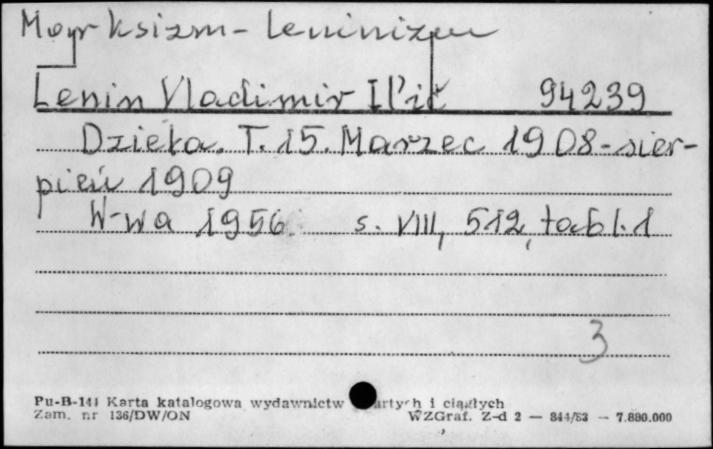 Marksizm-leninizm
Lenin Vladimir Il'ič 94239
Dzieła. T. 15. Marzec 1908-sier-
pień 1909
W-wa 1956. s. VIII, 512, tabl. 1
3
Pu-B-141 Karta katalogowa wydawnictw artych i ciągłych
Zam. nr 136/DW/ON WZGraf. Z-d 2 — 844/83 — 7.880.000